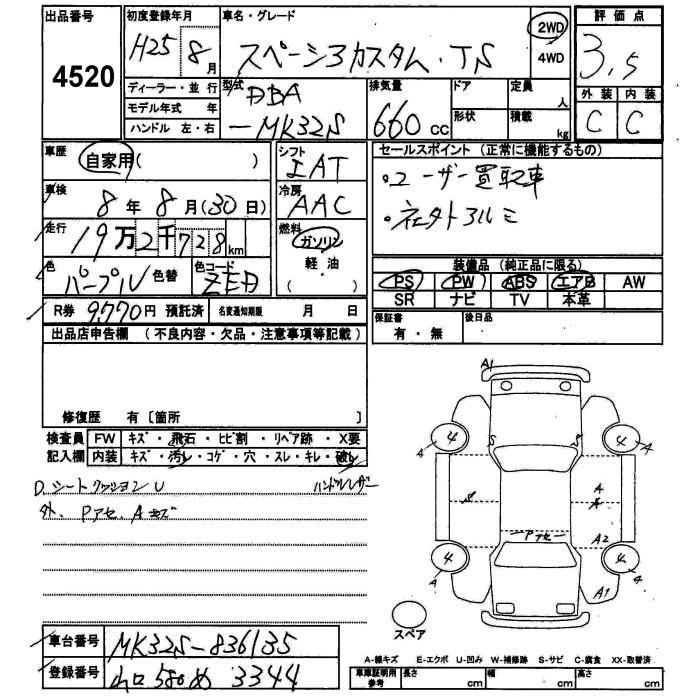 出品番号 初度登録年月 車名・グレード 評価点
4520 H25 8月 スペーシアカスタム・TS 2WD 4WD 3.5
ディーラー・並行 型式 DBA 排気量 ドア 定員 人 外装 内装
モデル年式 年 -MK32S 660cc 形状 積載 kg C C
ハンドル 左・右
車歴 シフト セールスポイント (正常に機能するもの)
自家用( ) IAT ・ユーザー買取車
車検 冷房 ・社外アルミ
8年 8月(30日) AAC
走行 燃料
19万2千728km ガソリン
色 色替 色コード 軽・油 装備品 (純正品に限る)
パープル ZED ( ) PS PW ABS エアB AW
SR ナビ TV 本革
R券 9,770円 預託済 名変通知期限 月 日 保証書 後日品
出品店申告欄 (不良内容・欠品・注意事項等記載) 有・無
修復歴 有〔箇所
検査員 FW キズ・飛石・ヒビ割・リペア跡・X要
記入欄 内装 キズ・汚レ・コゲ・穴・スレ・キレ・破レ
D.シートクッションU ハンドルレザー
外、Pアセ、Aキズ
A1
4 4 4 4
A A A A
S S
A
A
Pアセ A2
A1
スペア
車台番号 MK32S-836135
登録番号 山口 580 め 3344
A-線キズ E-エクボ U-凹み W-補修跡 S-サビ C-腐食 XX-取替済
車庫証明用参考 長さ cm 幅 cm 高さ cm